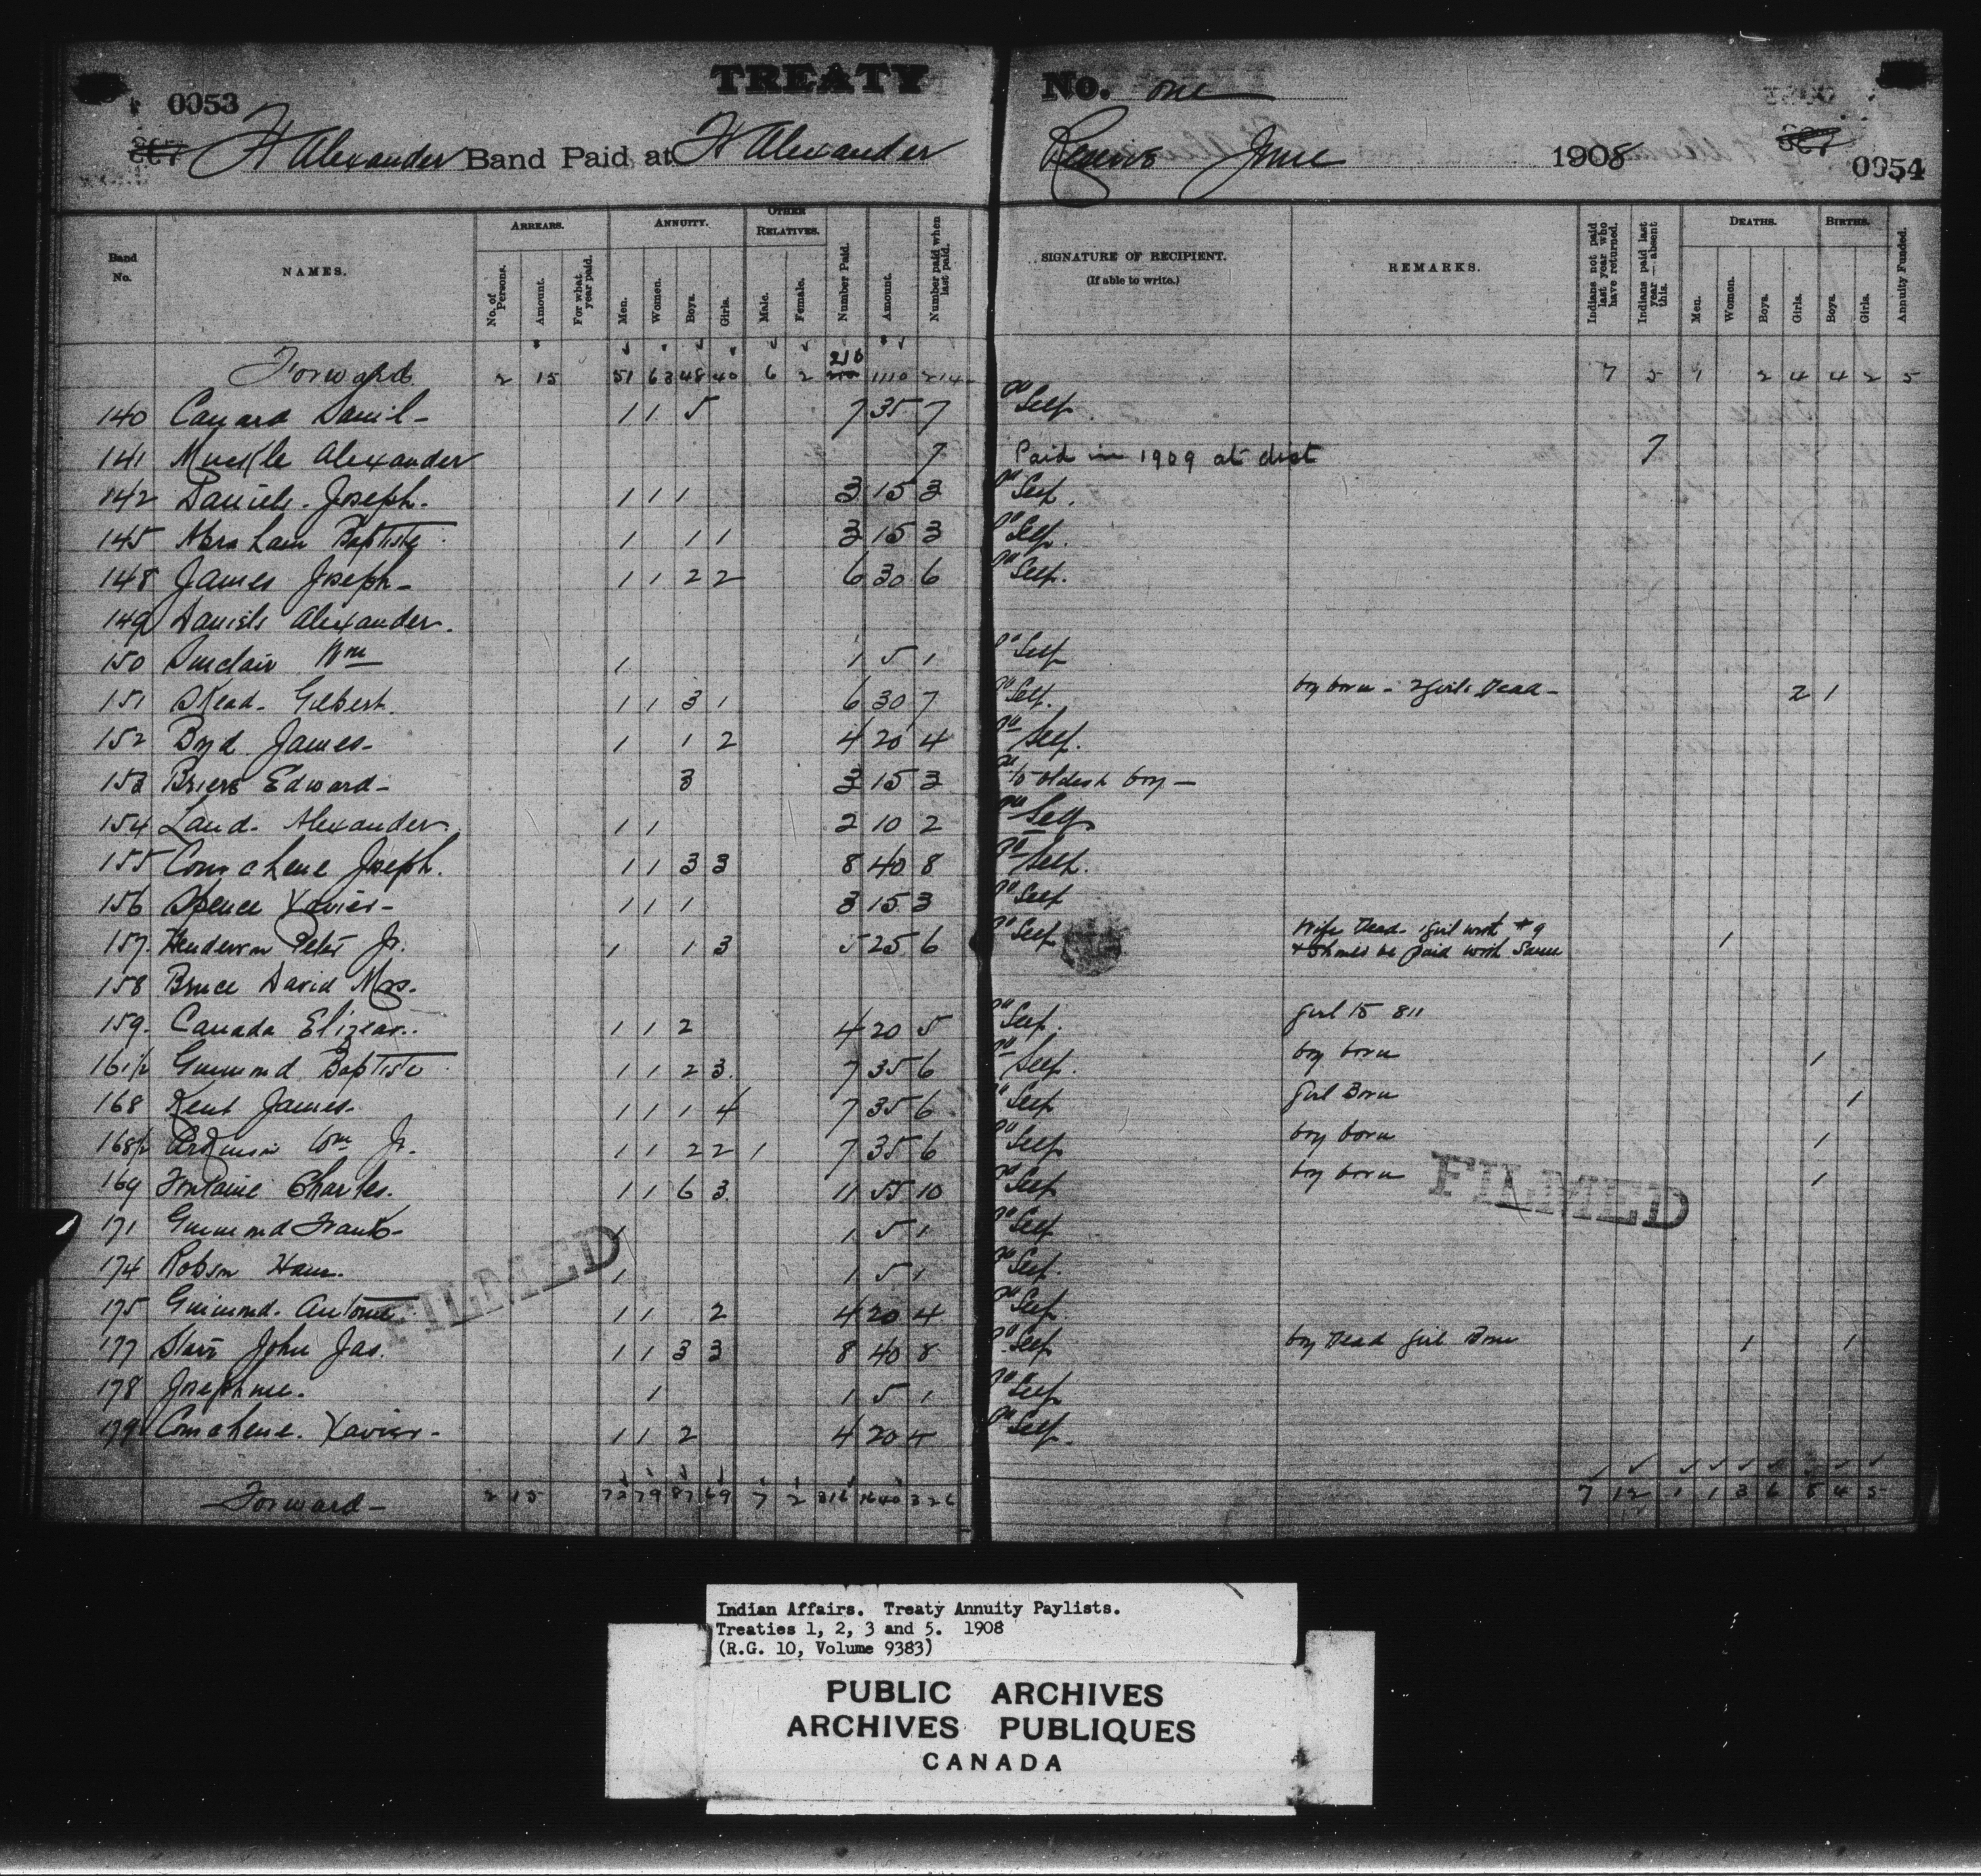 TREATY No. one
0053
Ft Alexander Band Paid at Ft Alexander Reserve June 1908
0054
Band No. NAMES. ARREARS. No. of Persons. Amount. For what year paid. ANNUITY. Men. Women. Boys. Girls. OTHER RELATIVES. Male. Female. Number Paid. Amount. Number paid when last paid. SIGNATURE OF RECIPIENT. (If able to write.) REMARKS. Indians not paid last year who have returned. Indians paid last year—absent this. DEATHS. Men. Women. Boys. Girls. BIRTHS. Boys. Girls. Annuity Funded.
Forward 2 15 51 63 48 40 6 2 210 1110 214 7 5 1 2 4 4 2 5
140 Canard Daniel - 1 1 5 7 35 7 Self
141 Muckle Alexander 7 Paid in 1909 at dist 7
142 Daniels. Joseph. 1 1 1 3 15 3 Self.
145 Abraham Baptiste 1 1 1 3 15 3 Self.
148 James Joseph - 1 1 2 2 6 30 6 Self.
149 Daniels Alexander.
150 Sinclair Wm 1 1 5 1 Self
151 Skead. Gilbert. 1 1 3 1 6 30 7 Self. boy born - 2 girls Dead - 2 1
152 Boyd James - 1 1 2 4 20 4 Self.
153 Briere Edward - 3 3 15 3 to oldest boy -
154 Laud. Alexander. 1 1 2 10 2 Self
155 Comahene Joseph. 1 1 3 3 8 40 8 Self.
156 Spence Xavier - 1 1 1 3 15 3 Self
157. Henderson Peter Jr. 1 1 3 5 25 6 Self Wife Dead. 1 girl with #9 1
paid with Same
158 Bruce David Mrs.
159. Canada Elizear. 1 1 2 4 20 5 Self. girl to 811
161½ Guimond Baptiste 1 1 2 3 7 35 6 Self. boy born 1
168 Kent James. 1 1 1 4 7 35 6 Self Girl Born 1
168½ Wm Jr. 1 1 2 2 1 7 35 6 Self boy born 1
169 Fontaine Charles. 1 1 6 3 11 55 10 Self boy born 1
171 Guimond Frank - 1 1 5 1 Self
174 Robson 1 1 5 1 Self.
175 Guimond. Antoine 1 1 2 4 20 4 Self.
177 Starr John Jas. 1 1 3 3 8 40 8 Self boy Dead girl Born 1 1
178 Josephine. 1 1 5 1 Self
179 Comahene. Xavier - 1 1 2 4 20 4 Self.
Forward - 2 15 79 87 69 7 2 316 1640 326 7 12 1 1 3 6 8 4 5
FILMED
FILMED
Indian Affairs. Treaty Annuity Paylists.
Treaties 1, 2, 3 and 5. 1908
(R.G. 10, Volume 9383)
PUBLIC ARCHIVES
ARCHIVES PUBLIQUES
CANADA